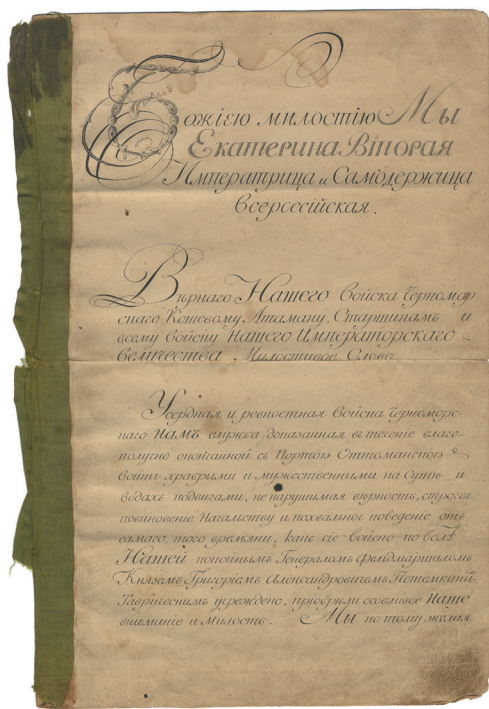 Божіею милостію Мы
Екатерина Вторая
Императрица и Самодержица
Всероссійская.
Вѣрнаго Нашего Войска Черномор
скаго Кошевому Атаману, Старшинам и
всему войску Нашего Императорскаго
величества Милостивое Слово
Усердная и ревностная Войска Черномор-
скаго Намъ служба, доказанная въ теченіе благо-
получно оконченной съ Портою Оттоманскою
Войны храбрыми и мужественными на Сушѣ и
водахъ подвигами, не нарушимая вѣрность, строгое
повиновеніе Начальству и похвальное поведеніе отъ
самаго того времяни, какъ сіе Войско по волѣ
Нашей покойнымъ Генераломъ Фельдмаршаломъ
Княземъ Григоріемъ Александровичемъ Потемкинымъ
Таврическимъ учреждено, пріобрѣли особливое Наше
вниманіе и Милость. Мы по тому желая